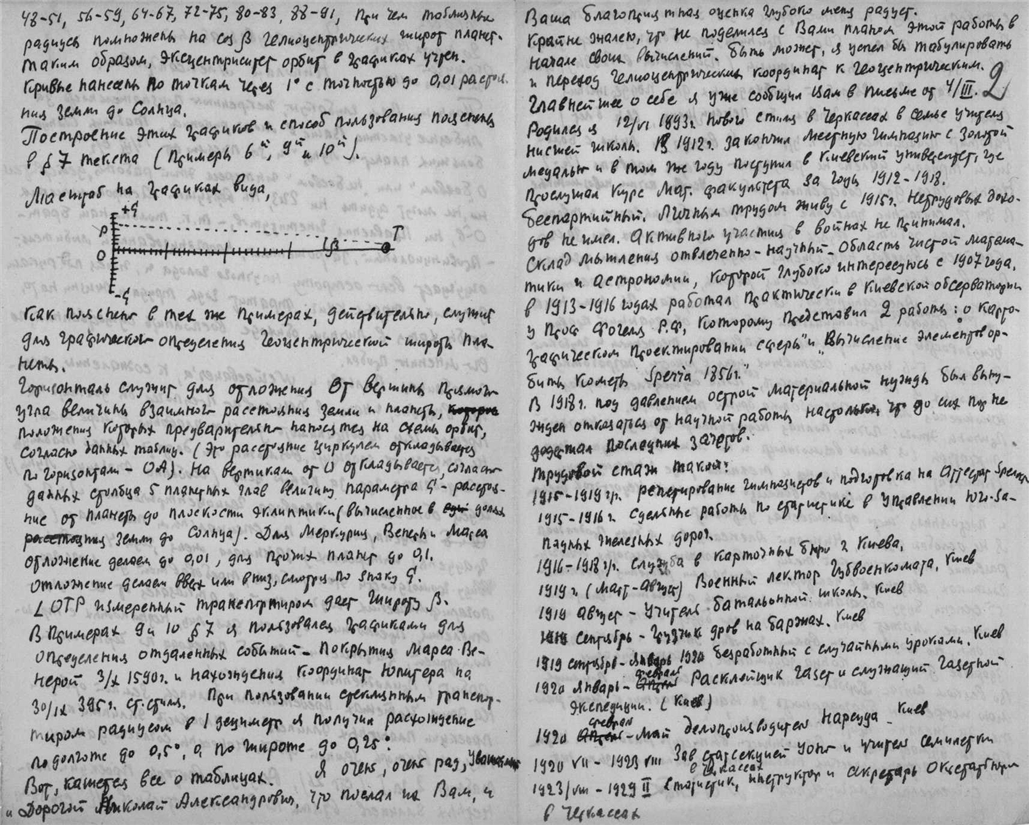 48-51, 56-59, 64-67, 72-75, 80-83, 88-91, при чем табличные
радиусы помножены на cos β гелиоцентрических широт планет.
Таким образом, эксцентриситет орбит в графиках учтен.
Кривые нанесены по точкам через 1° с точностью до 0,01 расстоя-
ния Земли до Солнца.
Построение этих графиков и способ пользования пояснены
в § 7 текста (Примеры 6й, 9й и 10й).
Масштаб на графиках вида,
+q
P
O
β
T
-q
как пояснено в тех же примерах, действительно, служит
для графического определения геоцентрической широты пла-
неты.
Горизонталь служит для отложения от вершины прямого
угла величины взаимного расстояния Земли и планеты, которые
положения которых предварительно наносятся на схемы орбит,
согласно данных таблиц. (Это расстояние циркулем откладывается
по горизонтали - ОА). На вертикали от О откладывается, согласно
данных столбца 5 планетных глав величину параметра q - расстоя-
ние от планеты до плоскости эклиптики (вычисленное в долях
расстояния Земли до Солнца). Для Меркурия, Венеры и Марса
отложение делаем до 0,01, для прочих планет до 0,1.
Отложение делаем вверх или вниз, смотря по знаку q.
∠ ОТР измеренный транспортиром дает широту β.
В примерах 9 и 10 § 7 я пользовался графиками для
определения отдаленных событий - покрытия Марса Ве-
нерой 3/X 1590 г. и нахождения координат Юпитера на
30/IX 395 г. ст. стиля. При пользовании стеклянным транспор-
тиром радиусом в 1 дециметр я получил расхождение
по долготе до 0,5°, а по широте до 0,25°.
Вот, кажется все о таблицах. Я очень, очень рад, уважаемый
и Дорогой Николай Александрович, что послал их Вам, и
Ваша благоприятная оценка глубоко меня радует.
Крайне жалею, что не поделился с Вами планом этой работы в
начале своих вычислений. Быть может, я успел бы табулировать
и переход гелиоцентрических координат к геоцентрическим.
Главнейшее о себе я уже сообщил Вам в письме от 4/III. 2
Родился я 12/VI 1893 г. нового стиля в Черкассах в семье учителя
низшей школы. В 1912 г. закончил местную гимназию с золотой
медалью и в том же году поступил в Киевский университет, где
прослушал курс Мат. факультета за годы 1912-1918.
Беспартийный. Личным трудом живу с 1915 г. Нетрудовых дохо-
дов не имел. Активного участия в войнах не принимал.
Склад мышления отвлеченно-научный - Область чистой матема-
тики и астрономии, которой глубоко интересуюсь с 1907 года.
в 1913-1916 годах работал практически в Киевской обсерватории
у проф Фогеля Р.Ф, которому представил 2 работы: „о карто-
графическом проектировании сферы" и „Вычисление элементов ор-
биты кометы Speria 1896 г."
В 1918 г. под давлением острой материальной нужды был выну-
жден отказаться от научной работы настолько, что до сих пор не
додержал последних зачетов.
Трудовой стаж такой:
1915-1919 г.г. репетирование гимназистов и подготовка на Аттестат Зрелости
1915-1916 г. Сдельные работы по статистике в Управлении Юго-За-
падных железных дорог.
1916-1918 г.г. Служба в карточных бюро г. Киева.
1919 г. (Март-Август) Военный лектор Губвоенкомата, Киев
1919 август - Учитель батальонной школы. Киев
1919 сентябрь - Грузчик дров на баржах. Киев
1919 сентябрь - Январь 1920 безработный с случайными уроками. Киев
1920 январь - февраль Расклейщик газет и служащий газетной
экспедиции. (Киев)
1920 февраль - Май делопроизводитель Нарсуда - Киев
1920 VII - 1923 VIII Зав статсекцией УОНО и учитель семилетки
в Черкассах
1923/VIII - 1929 II Статистик, инструктор и секретарь Окрстатбюро
в Черкассах